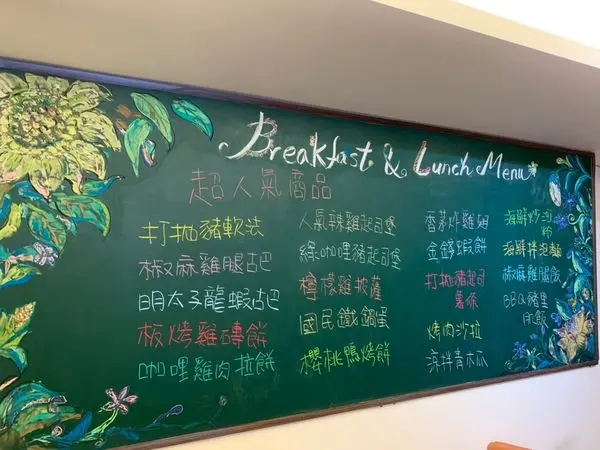 Breakfast & Lunch Menu
超人氣商品
打拋豬軟法
椒麻雞腿古巴
明太子龍蝦古巴
板烤雞磚餅
咖哩雞肉拉餅
人氣辣雞起司堡
綠咖哩豬起司堡
檸檬雞披薩
國民鐵鍋蛋
櫻桃鴨烤餅
香茅炸雞翅
金錢蝦餅
打拋豬起司
薯條
烤肉沙拉
涼拌青木瓜
海鮮炒泡麵
海鮮拌泡麵
椒麻雞腿飯
BBQ豬里
肌飯